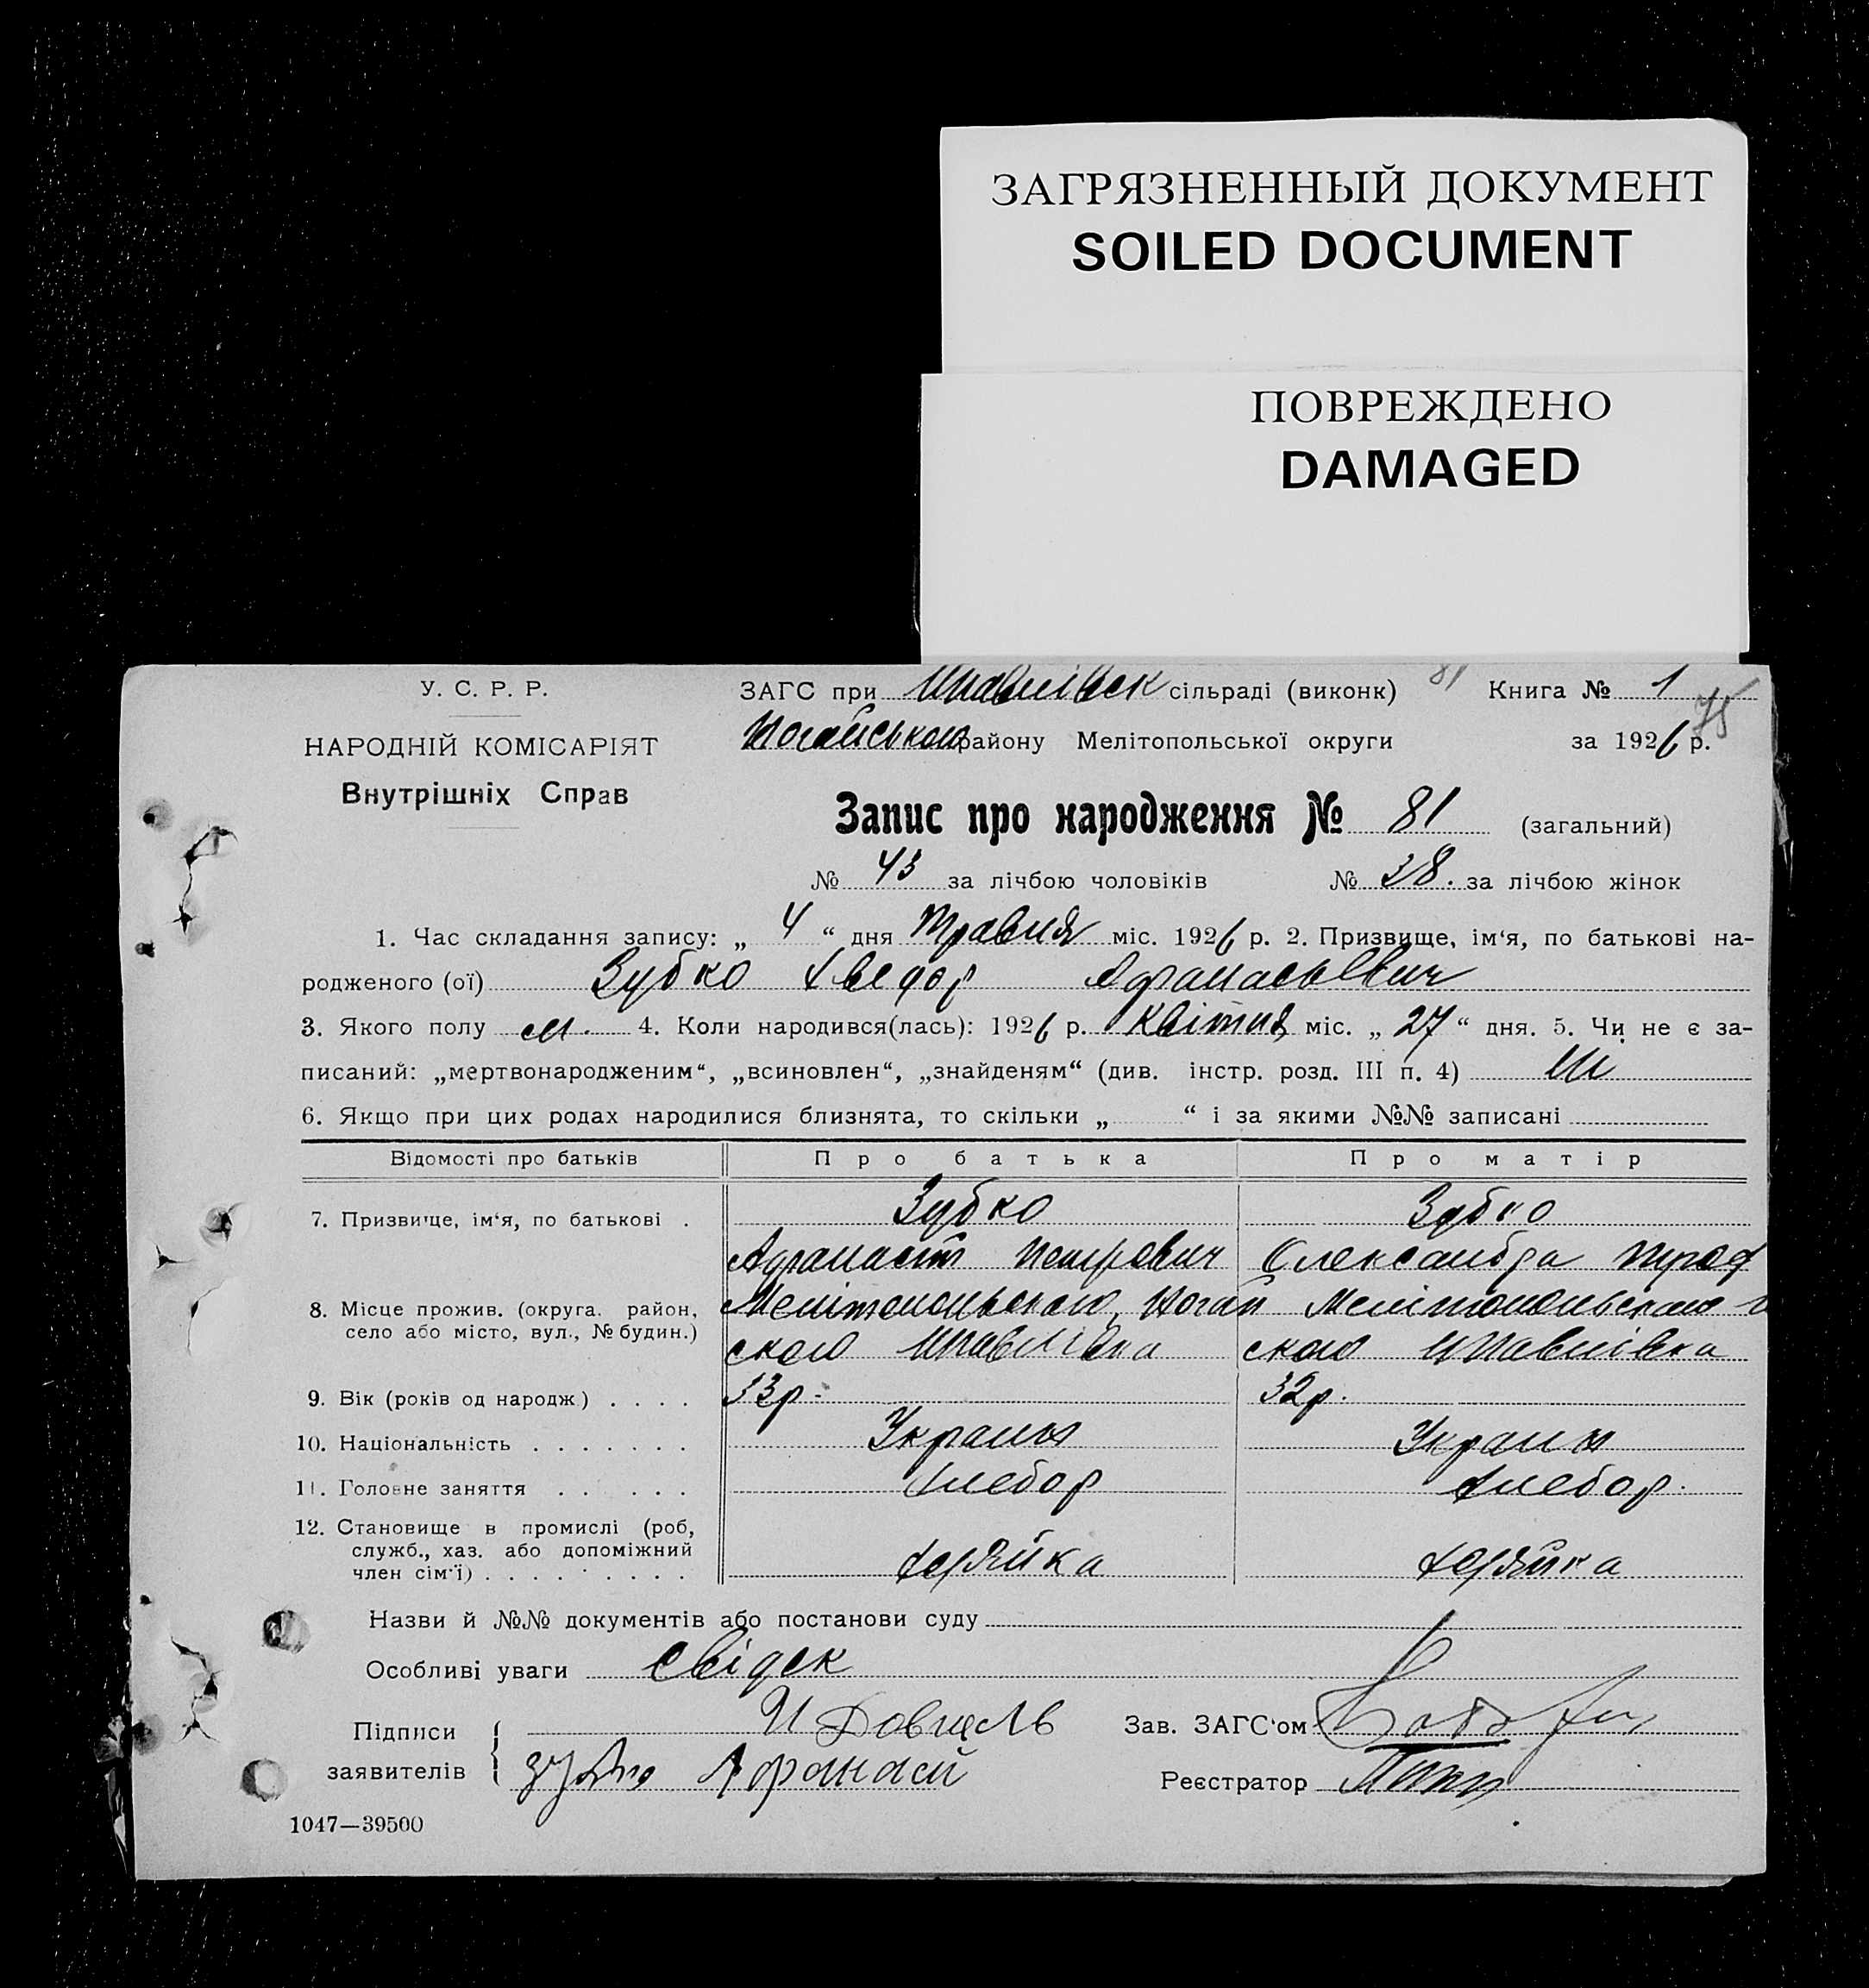 ЗАГРЯЗНЕННЫЙ ДОКУМЕНТ
SOILED DOCUMENT
ПОВРЕЖДЕНО
DAMAGED
У. С. Р. Р.
НАРОДНІЙ КОМІСАРІЯТ
Внутрішніх Справ
ЗАГС при сільраді (виконк) 81 Книга № 1
75
Ногайського району Мелітопольської округи за 1926 р.
Запис про народження № 81 (загальний)
№ 43 за лічбою чоловіків № 38. за лічбою жінок
1. Час складання запису: „ 4 “ дня Травня міс. 1926 р. 2. Призвище, ім'я, по батькові на-
родженого (ої) Зубко Хведор Афанасьевич
3. Якого полу м. 4. Коли народився(лась): 1926 р. Квітня міс. „ 27 “ дня. 5. Чи не є за-
писаний: „мертвонародженим“, „всиновлен“, „знайденям“ (див. інстр. розд. III п. 4) Ні
6. Якщо при цих родах народилися близнята, то скільки „ “ і за якими №№ записані
Відомості про батьків Про батька Про матір
7. Призвище, ім'я, по батькові . Зубко Зубко
Афанасій Петрович Олександра Троф
8. Місце прожив. (округа. район, село або місто, вул., № будин.) Мелітопольського, Ногай Мелітопольського
ского ского
9. Вік (років од народж) . . . . 33р. 32р.
10. Національність . . . . . . . Украин Украин
11. Головне заняття . . . . . Хлебор Хлебор.
12. Становище в промислі (роб,
служб., хаз. або допоміжний
член сім'ї) . . . . . . . . . .
Назви й №№ документів або постанови суду
Особливі уваги свідек
Підписи заявителів И Довгаль Зав. ЗАГС'ом
Зубко Афанасій Реєстратор
1047—39500